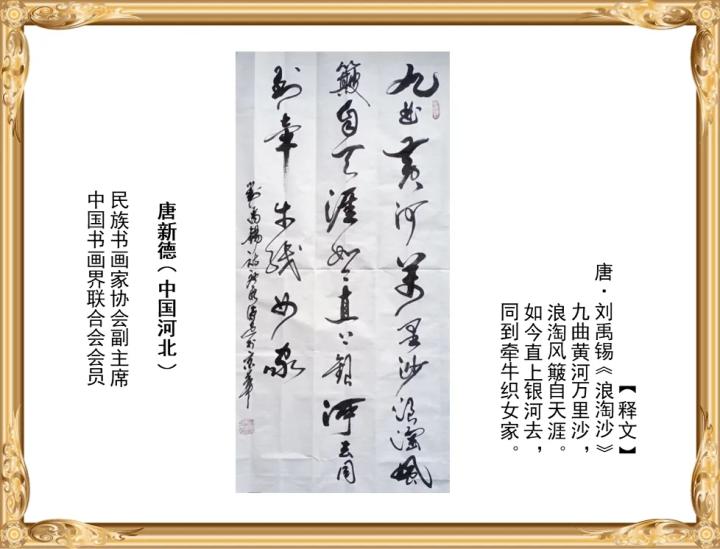 【释文】
唐·刘禹锡《浪淘沙》
九曲黄河万里沙，
浪淘风簸自天涯。
如今直上银河去，
同到牵牛织女家。
九曲黄河萬里沙浪淘風
簸自天涯如今直上銀河去同
到牵牛织女家
刘禹锡诗
唐新德（中国河北）
民族书画家协会副主席
中国书画界联合会会员